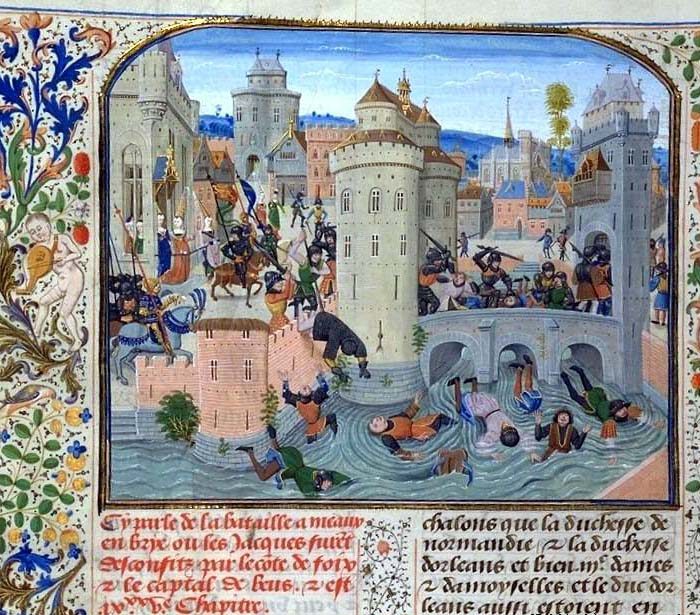 Cy parle de la bataille a meaulx
en brye ou les Jacques furēt
desconfitz par le cōte de foix
& le captal de beus, & est
Chapitre.
chalons que la duchesse de
normandie & la duchesse
dorleans et bien .iiiᶜ. dames
& damoyselles et le duc dor
leans aussi estoient en